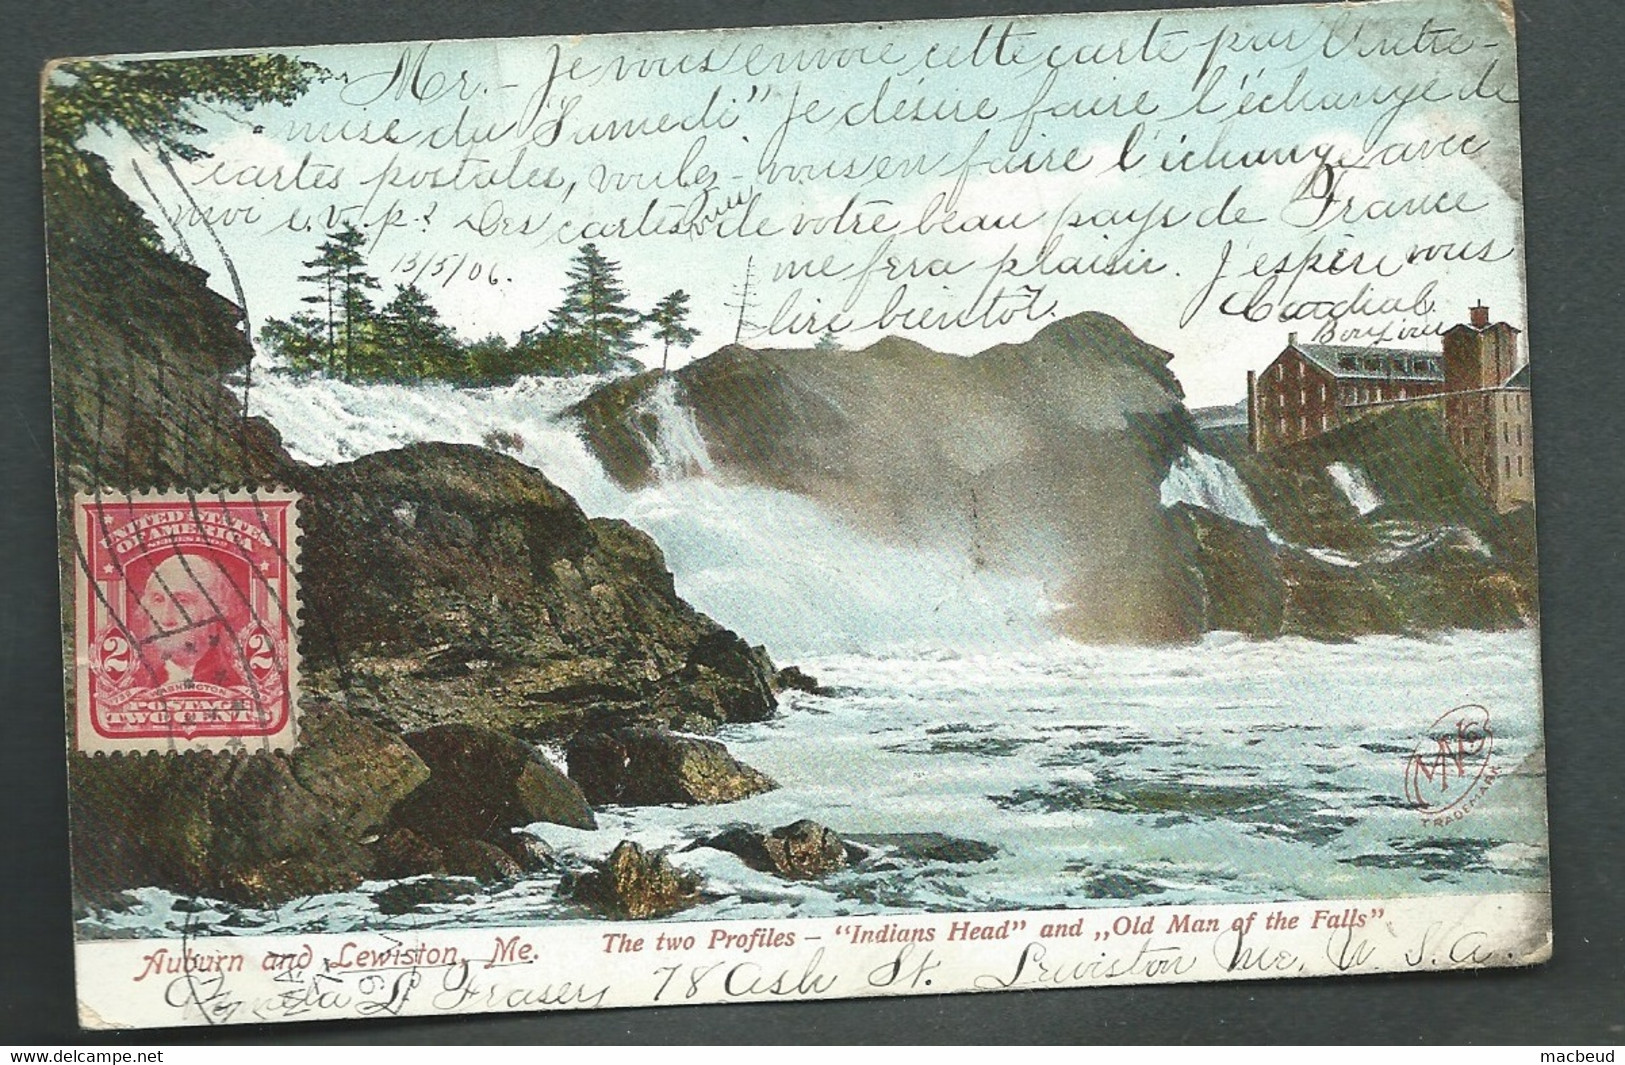 Mr. - Je vous envoie cette carte par l'entre-
mise du "Samedi" Je désire faire l'échange de
cartes postales, voulez-vous en faire l'échange avec
moi s.v.p.? Des cartes vue de votre beau pays de France
13/5/06.
me fera plaisir. J'espère vous
lire bientôt. Cordial
Bonjour
UNITED STATES
OF AMERICA
SERIES 1902
2 2
WASHINGTON
POSTAGE
TWO CENTS
TRADEMARK
Auburn and Lewiston, Me. The two Profiles — "Indians Head" and „Old Man of the Falls"
L Fraser, 78 Ash St. Lewiston Me, U.S.A.
delcampe.net
macbeud